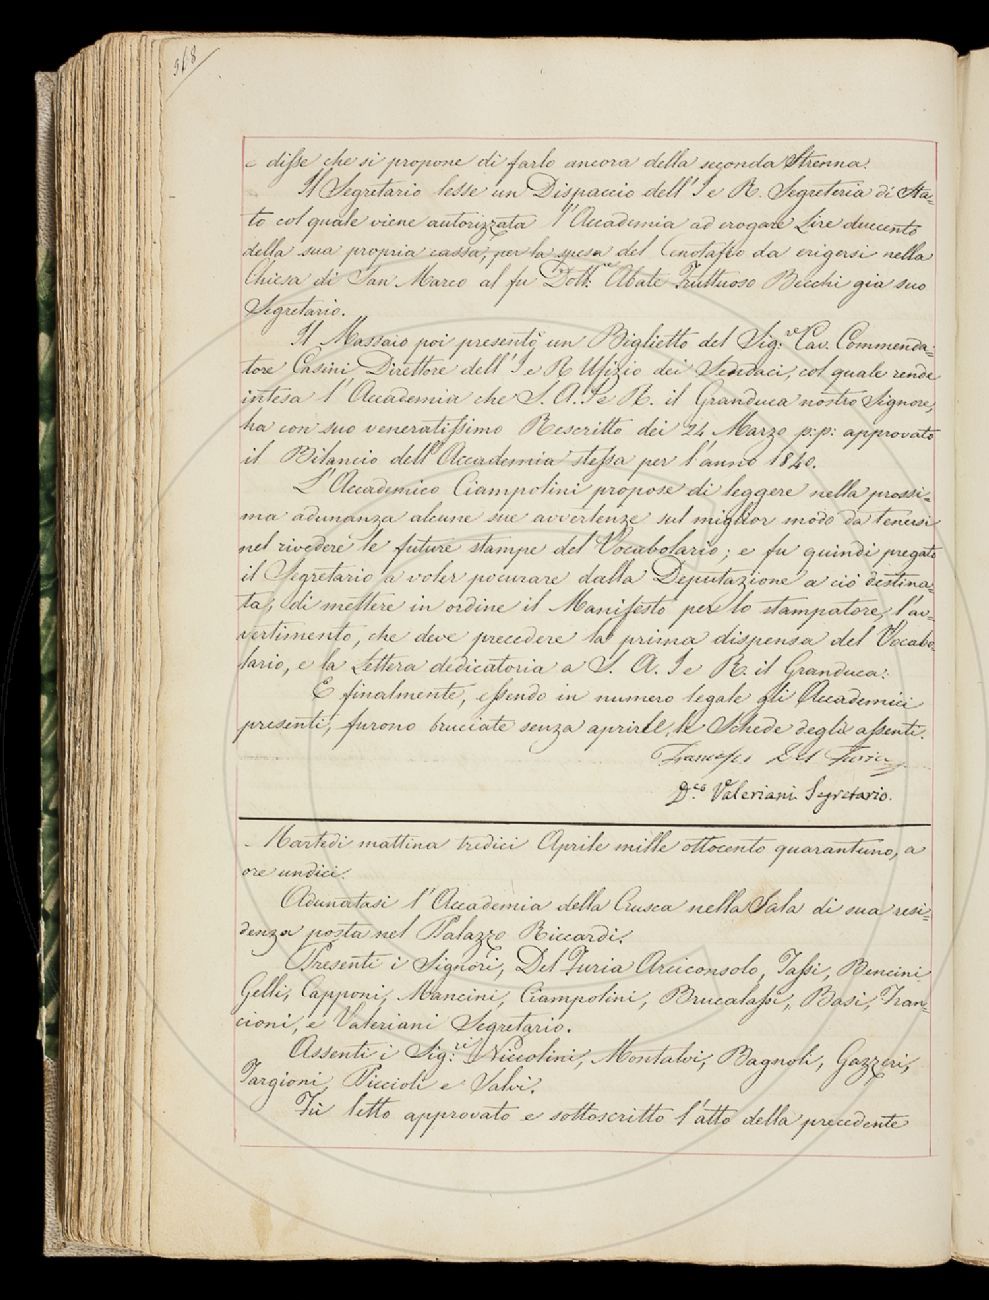 568
e disse che si propone di farlo ancora della seconda Strenna.
Il Segretario lesse un Dispaccio dell'I e R. Segreteria di Sta=
to col quale viene autorizzata l'Accademia ad erogare Lire duecento
della sua propria cassa, per la spesa del Cenotafio da erigersi nella
Chiesa di San Marco al fu Dott.re Abate Fruttuoso Becchi già suo
Segretario.
Il Massaio poi presentò un Biglietto del Sig.re Cav. Commenda=
tore Casini Direttore dell'I e R Ufizio dei Sindaci, col quale rende
intesa l'Accademia che S. A. I e R. il Granduca nostro Signore,
ha con suo veneratissimo Rescritto dei 24 Marzo p:p: approvato
il Bilancio dell'Accademia stessa per l'anno 1840.
L'Accademico Ciampolini propose di leggere nella prossi=
ma adunanza alcune sue avvertenze sul miglior modo da tenersi
nel rivedere le future stampe del Vocabolario; e fu quindi pregato
il Segretario a voler pocurare dalla Deputazione a ciò destina=
ta, di mettere in ordine il Manifesto per lo stampatore, l'av=
vertimento, che deve precedere la prima dispensa del Vocabo=
lario, e la Lettera dedicatoria a S. A. I e R. il Granduca.
E finalmente, essendo in numero legale gli Accademici
presenti, furono bruciate senza aprirle, le Schede degli assenti.
Francesco Del Furia
D.co Valeriani Segretario.
Martedì mattina tredici Aprile mille ottocento quarantuno, a
ore undici.
Adunatasi l'Accademia della Crusca nella Sala di sua resi=
denza posta nel Palazzo Riccardi.
Presenti i Signori, Del Furia Arciconsolo, Tassi, Bencini
Gelli, Capponi, Mancini, Ciampolini, Brucalassi, Basi, Fran=
cioni, e Valeriani Segretario.
Assenti i Sig.ri Niccolini, Montalvi, Bagnoli, Gazzeri,
Targioni, Piccioli e Salvi.
Fù letto approvato e sottoscritto l'atto della precedente